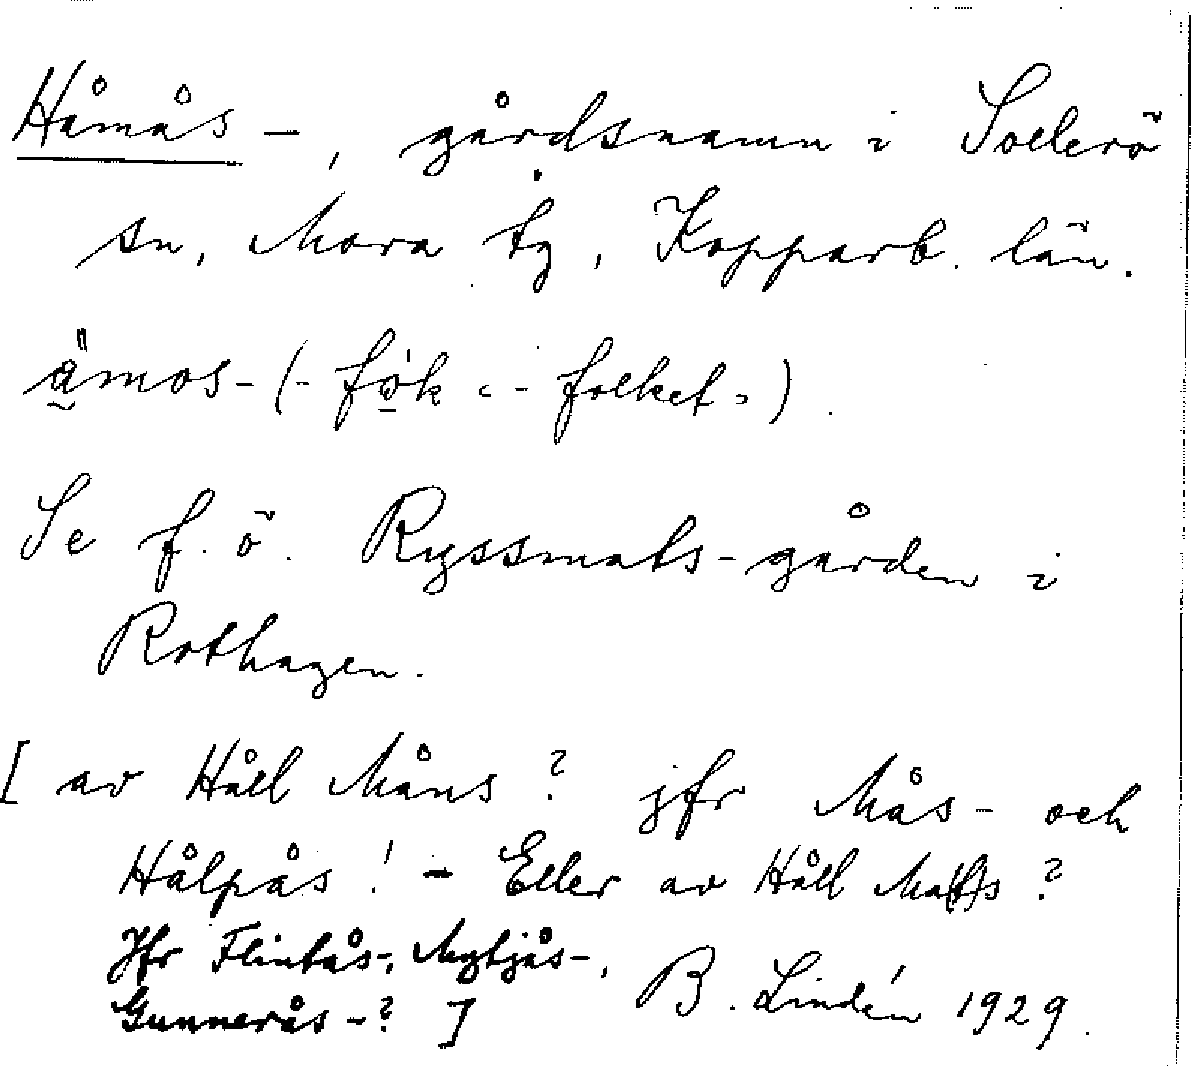 Håmås -, gårdsnamn i Sollerö
sn, Mora tg, Kopparb. län.
ämos- (- fo̱k <- folket>).
Se f. ö. Ryssmats-gården i
Rothagen.
[ av Håll Måns? jfr Mås- och
Hålpås! - Eller av Håll Mat(t)s?
Jfr Flintås-, Mytjås-,
Gunnerås-? ]
B. Lindén 1929.